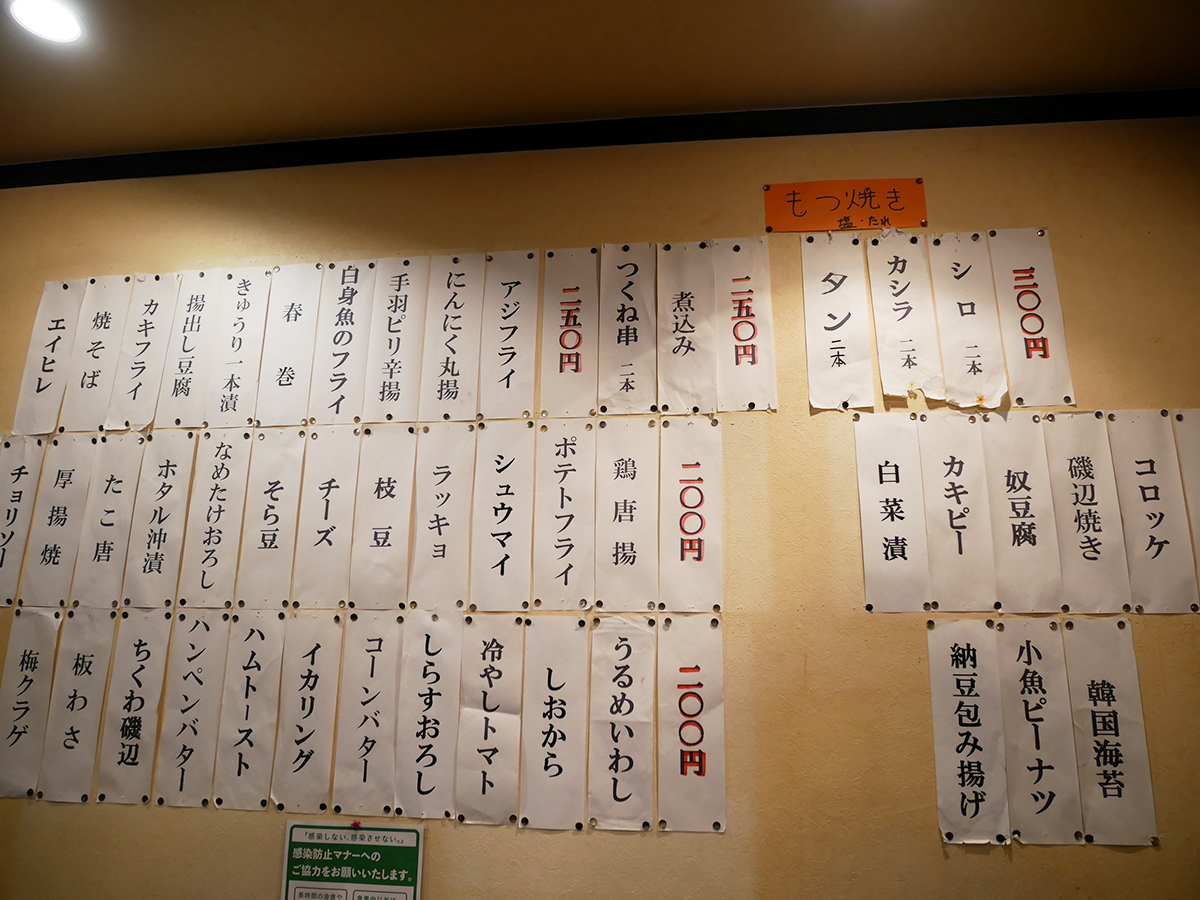 もつ焼き
塩・たれ
三〇〇円
シロ 二本
カシラ 二本
タン 二本
二五〇円
煮込み
つくね串 二本
二五〇円
アジフライ
にんにく丸揚
手羽ピリ辛揚
白身魚のフライ
春巻
きゅうり一本漬
揚出し豆腐
カキフライ
焼そば
エイヒレ
コロッケ
磯辺焼き
奴豆腐
カキピー
白菜漬
二〇〇円
鶏唐揚
ポテトフライ
シュウマイ
ラッキョ
枝豆
チーズ
そら豆
なめたけおろし
ホタル沖漬
たこ唐
厚揚焼
チョリソー
韓国海苔
小魚ピーナツ
納豆包み揚げ
二〇〇円
うるめいわし
しおから
冷やしトマト
しらすおろし
コーンバター
イカリング
ハムトースト
ハンペンバター
ちくわ磯辺
板わさ
梅クラゲ
「感染しない、感染させない。」
感染防止マナーへの
ご協力をお願いいたします。